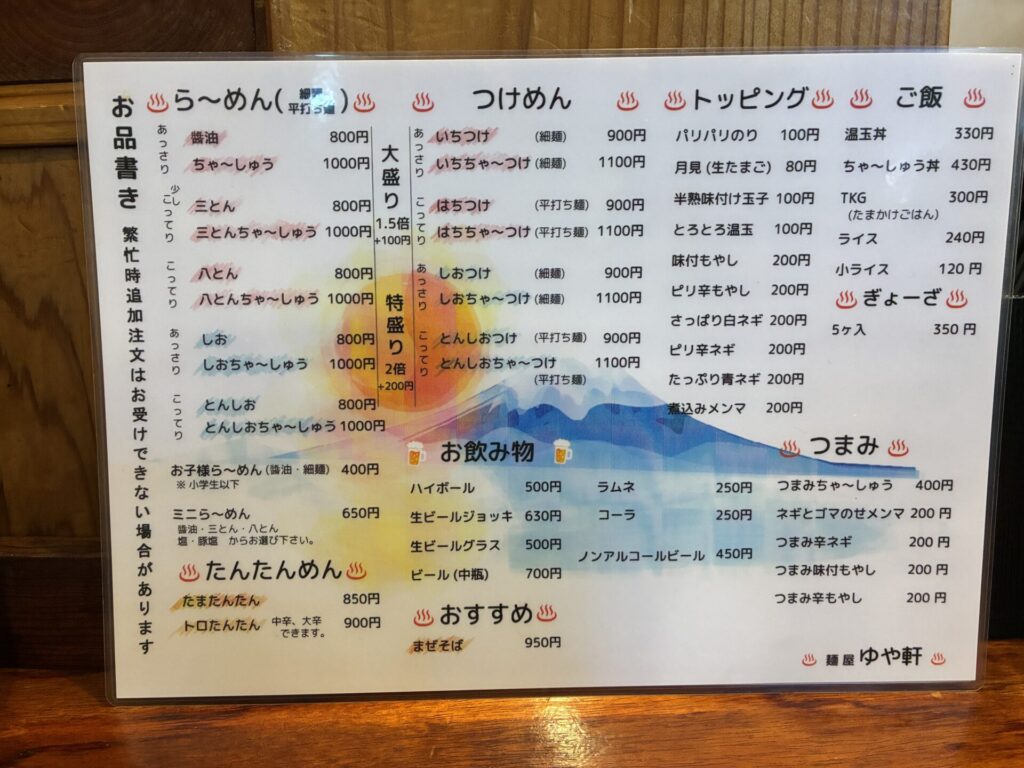 お品書き 繁忙時追加注文はお受けできない場合があります
ら～めん(細麺 平打ち麺)
あっさり
醬油 800円
ちゃ～しゅう 1000円
少しこってり
三とん 800円
三とんちゃ～しゅう 1000円
こってり
八とん 800円
八とんちゃ～しゅう 1000円
あっさり
しお 800円
しおちゃ～しゅう 1000円
こってり
とんしお 800円
とんしおちゃ～しゅう 1000円
大盛り
1.5倍
+100円
特盛り
2倍
+200円
お子様ら～めん (醬油・細麺) 400円
※ 小学生以下
ミニら～めん 650円
醬油・三とん・八とん
塩・豚塩 からお選び下さい。
たんたんめん
たまたんたん 850円
トロたんたん 中辛、大辛 できます。 900円
つけめん
あっさり
いちつけ (細麺) 900円
いちちゃ～つけ (細麺) 1100円
こってり
はちつけ (平打ち麺) 900円
はちちゃ～つけ (平打ち麺) 1100円
あっさり
しおつけ (細麺) 900円
しおちゃ～つけ (細麺) 1100円
こってり
とんしおつけ (平打ち麺) 900円
とんしおちゃ～つけ 1100円
(平打ち麺)
お飲み物
ハイボール 500円
生ビールジョッキ 630円
生ビールグラス 500円
ビール (中瓶) 700円
ラムネ 250円
コーラ 250円
ノンアルコールビール 450円
おすすめ
まぜそば 950円
トッピング
パリパリのり 100円
月見 (生たまご) 80円
半熟味付け玉子 100円
とろとろ温玉 100円
味付もやし 200円
ピリ辛もやし 200円
さっぱり白ネギ 200円
ピリ辛ネギ 200円
たっぷり青ネギ 200円
煮込みメンマ 200円
ご飯
温玉丼 330円
ちゃ～しゅう丼 430円
TKG 300円
(たまかけごはん)
ライス 240円
小ライス 120円
ぎょーざ
5ヶ入 350円
つまみ
つまみちゃ～しゅう 400円
ネギとゴマのせメンマ 200円
つまみ辛ネギ 200円
つまみ味付もやし 200円
つまみ辛もやし 200円
麺屋 ゆや軒